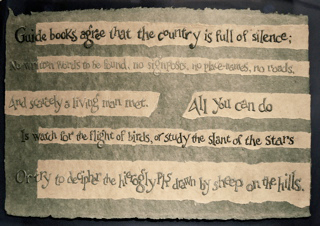 Guide books agree that the country is full of silence;
No written words to be found, no signposts, no place-names, no roads,
And scarcely a living man met. All you can do
Is watch for the flight of birds, or study the slant of the stars
Or try to decipher the hieroglyphs drawn by sheep on the hills.